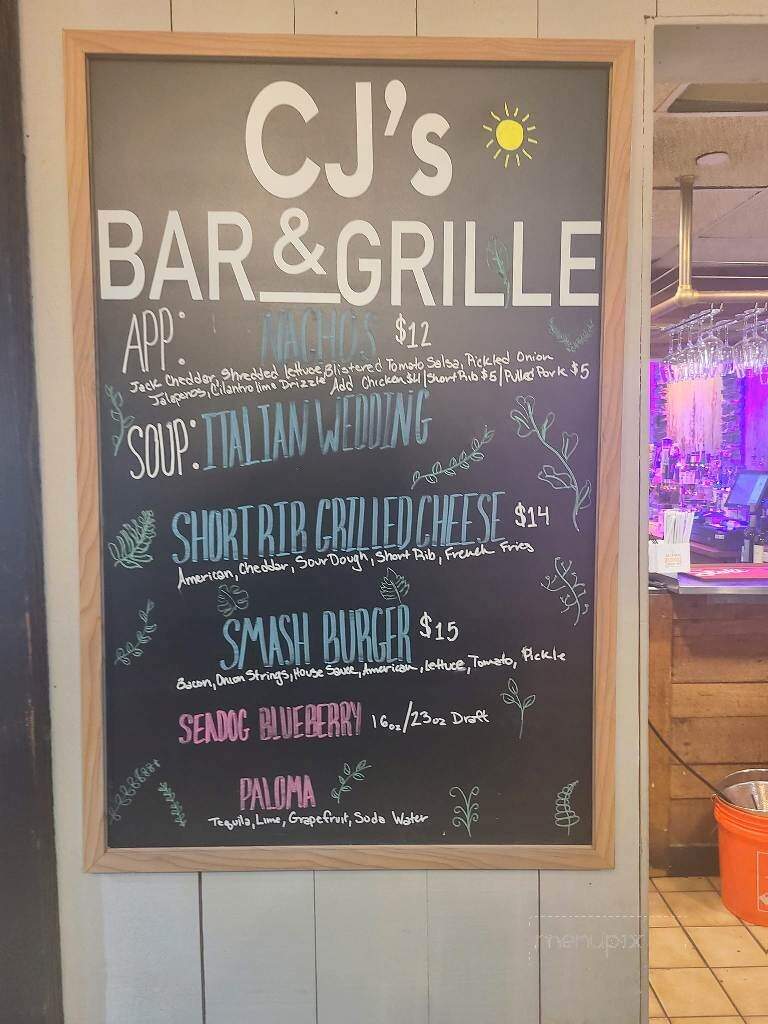 CJ's
BAR & GRILLE
APP: NACHOS $12
Jack Cheddar, Shredded lettuce, Blistered Tomato Salsa, Pickled Onion
Jalapenos, Cilantro lime Drizzle Add Chicken $4/Short Rib $5/Pulled Pork $5
SOUP: ITALIAN WEDDING
SHORT RIB GRILLED CHEESE $14
American, Cheddar, Sour Dough, Short Rib, French Fries
SMASH BURGER $15
Bacon, Onion Strings, House Sauce, American, lettuce, Tomato, Pickle
SEADOG BLUEBERRY 16oz/23oz Draft
PALOMA
Tequila, Lime, Grapefruit, Soda Water
menupix